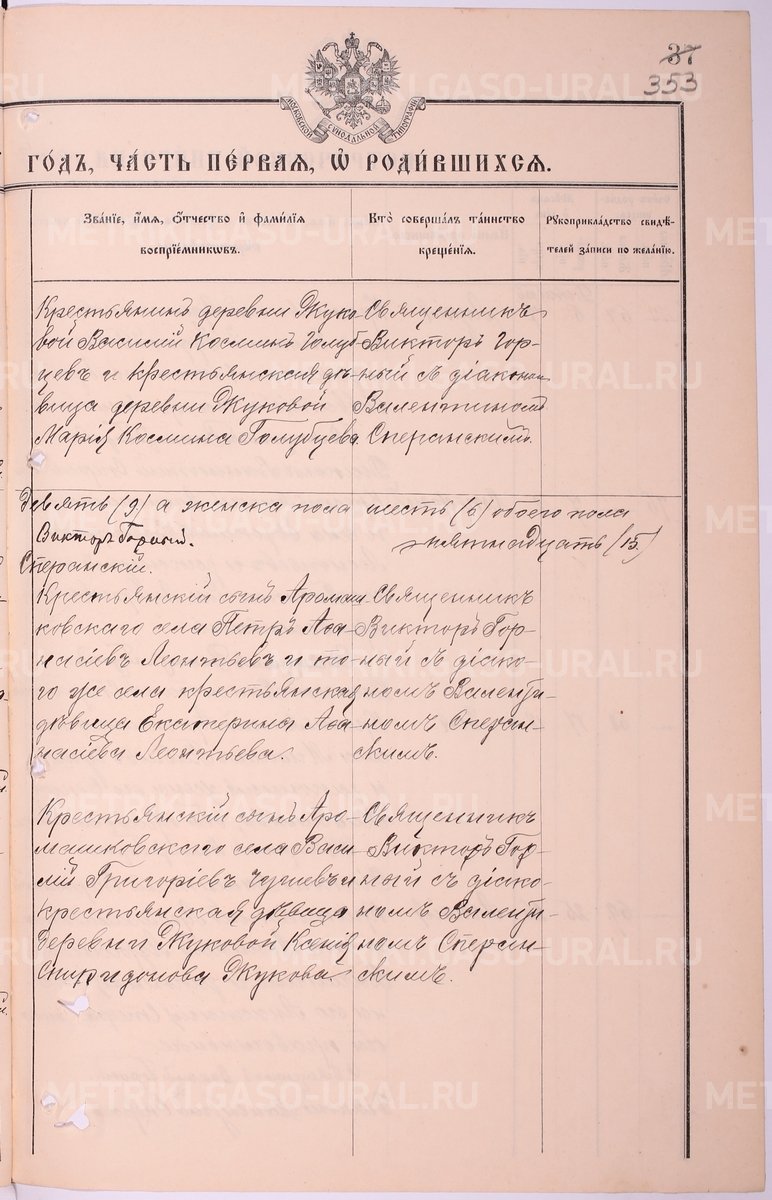 37
353
МОСКОВСКОЙ СѴНОДАЛЬНОЙ ТИПОГРАФІИ
ГО́ДЪ, ЧА́СТЬ ПЕ́РВАЯ, Ѡ҆ РОДИ́ВШИХСЯ.
Зва́нїе, и҆́мя, ѻ҆́тчество и҆ фами́лїя воспрїе́мниковъ.
Кто̀ соверша́лъ та́инство креще́нїя.
Рꙋкоприкла́дство свидѣ́телей за́писи по жела́нїю.
Крестьянинъ деревни Жуко-
вой Василій Косминъ Голуб-
цевъ и крестьянская дѣ-
вица деревни Жуковой
Марія Космина Голубцева
Священникъ
Викторъ Гор-
ный съ діакономъ
Валентиномъ
Сперанскимъ.
Девять (9) а женска пола шесть (6) обоего пола
пятнадцать (15)
Викторъ Горный.
Сперанскій.
Крестьянскій сынъ Аромаш-
ковскаго села Петръ Афа-
насіевъ Леонтьевъ и то-
го же села крестьянская
дѣвица Екатерина Афа-
насіева Леонтьева.
Священникъ
Викторъ Гор-
ный съ діако-
номъ Валенти-
номъ Сперан-
скимъ.
Крестьянскій сынъ Аро-
машковскаго села Васи-
лій Григоріевъ и
крестьянская дѣвица
деревни Жуковой Ксенія
Спиридонова Жукова.
Священникъ
Викторъ Гор-
ный съ діако-
номъ Валенти-
номъ Сперан-
скимъ.
METRIKI.GASO-URAL.RU